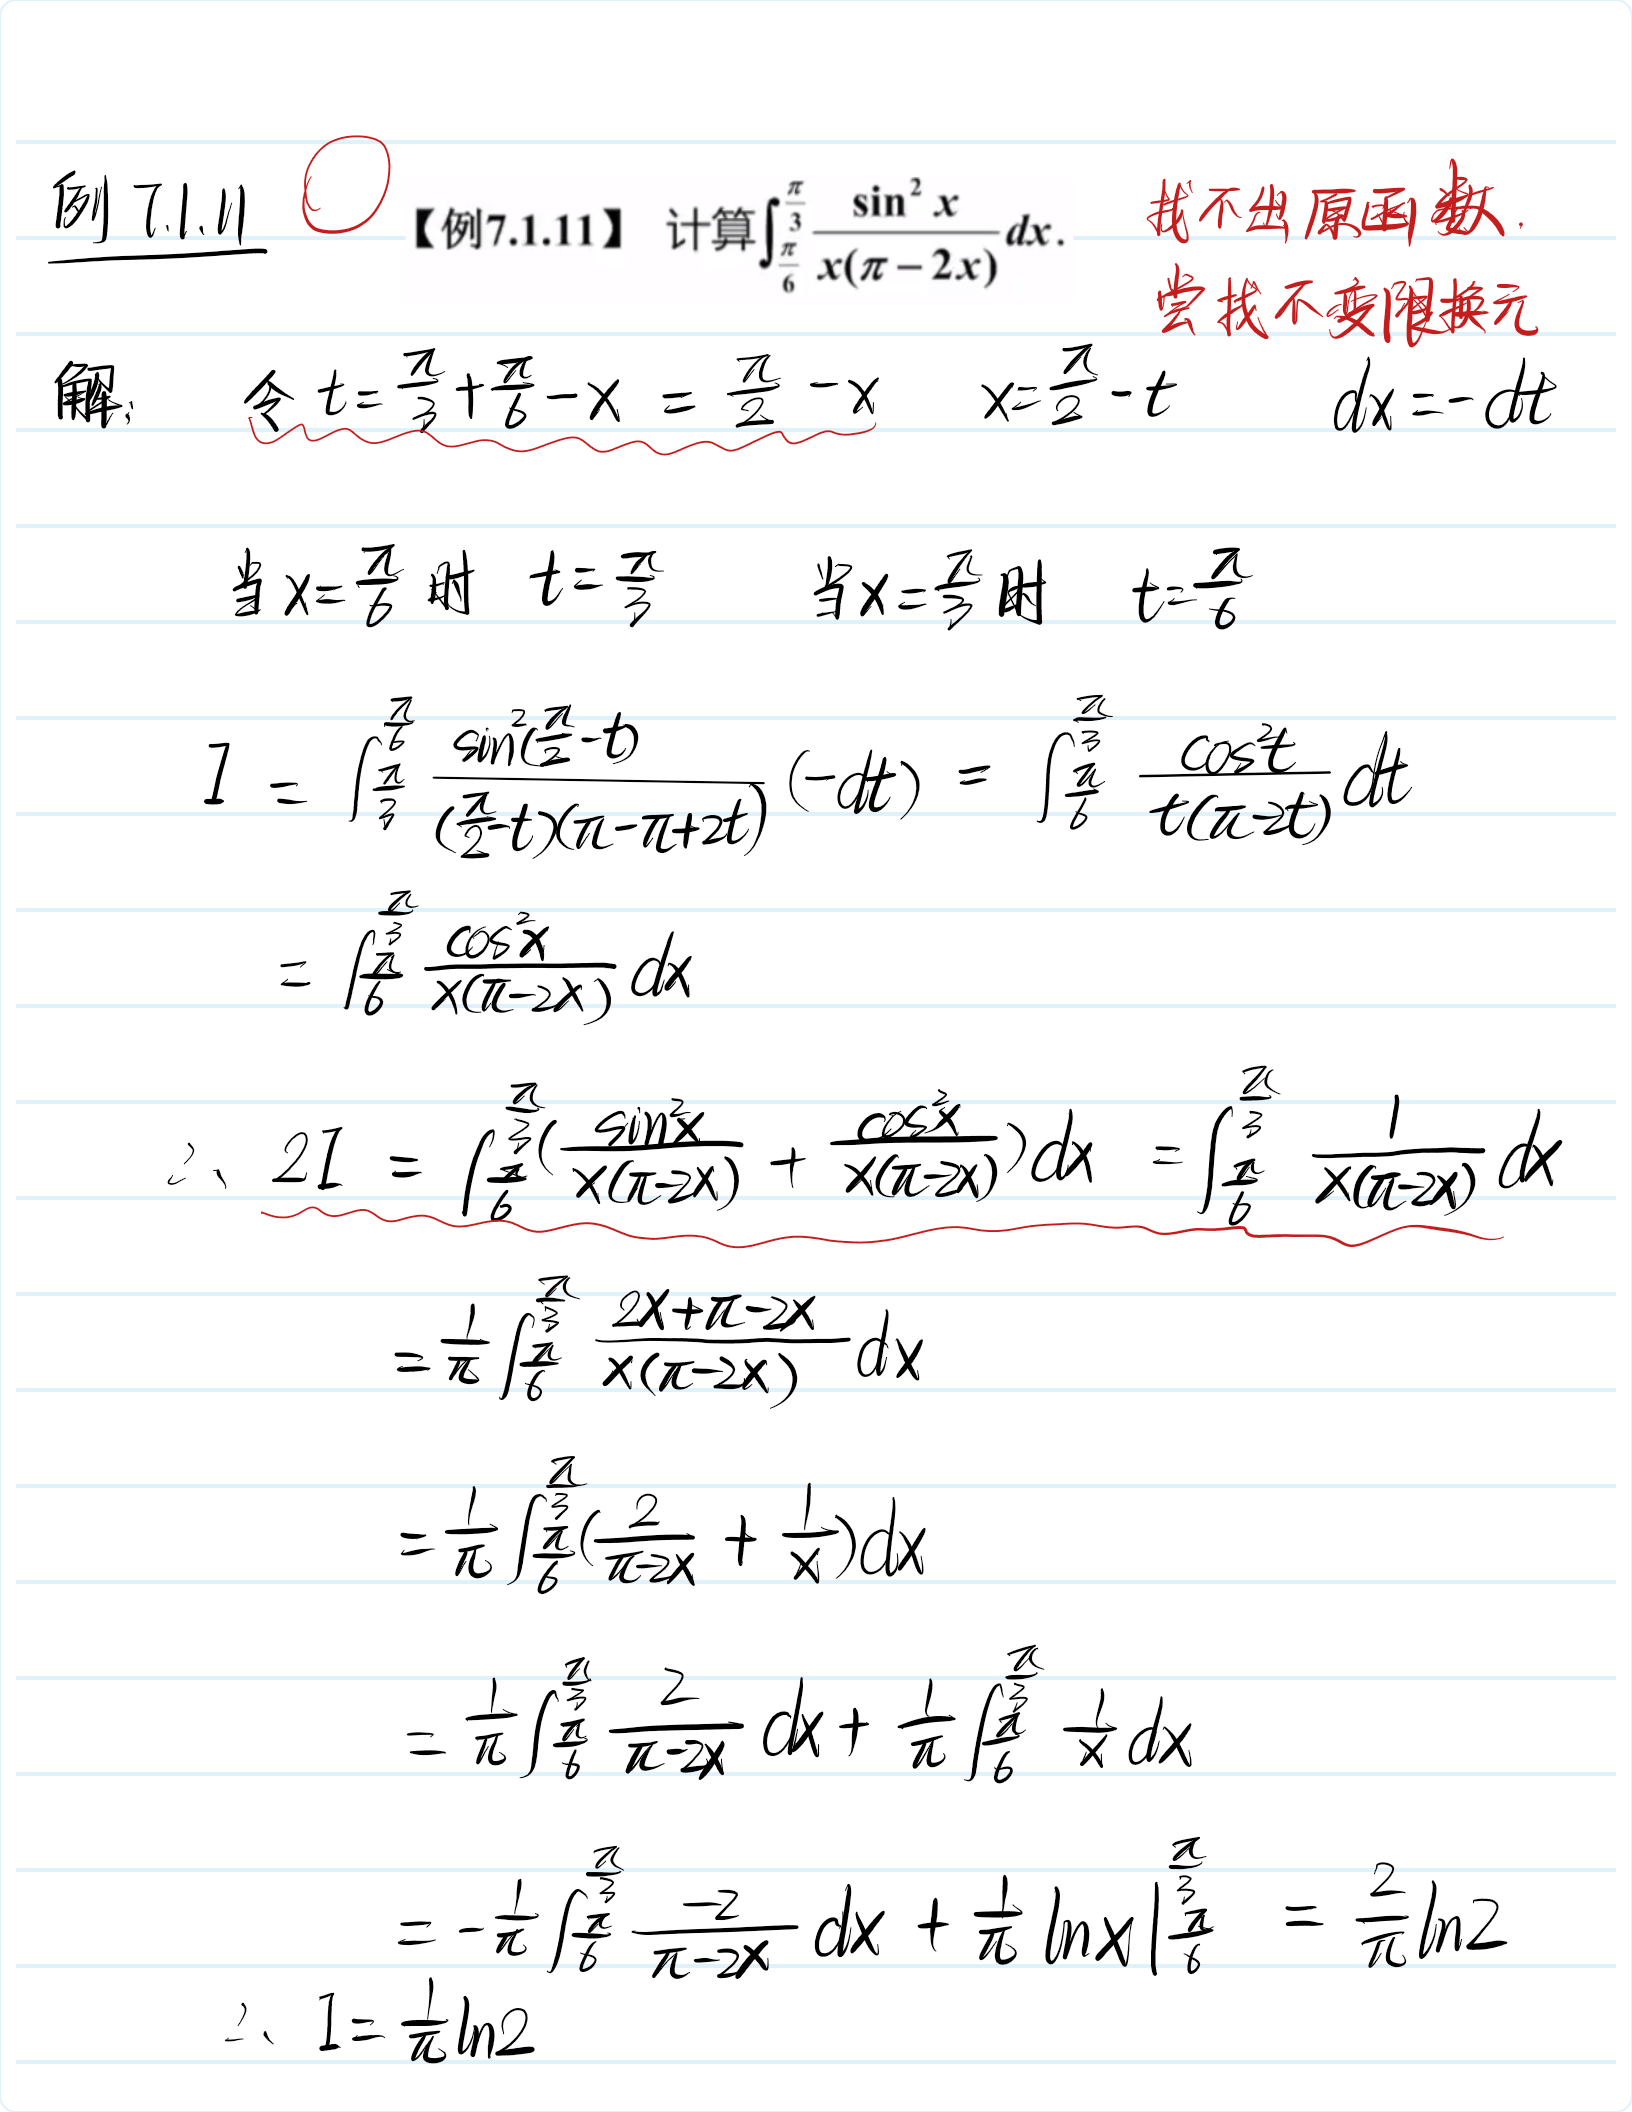 例7.1.11 【例7.1.11】 计算∫_{π/6}^{π/3} sin² x / x(π − 2x) dx. 找不出原函数,
尝找不变限换元
解: 令 t = π/3 + π/6 − x = π/2 − x x = π/2 − t dx = −dt
当 x = π/6 时 t = π/3 当 x = π/3 时 t = π/6
I = ∫_{π/3}^{π/6} sin²(π/2 − t) / (π/2 − t)(π − π + 2t) (−dt) = ∫_{π/6}^{π/3} cos²t / t(π − 2t) dt
= ∫_{π/6}^{π/3} cos²x / x(π − 2x) dx
∴ 2I = ∫_{π/6}^{π/3} ( sin²x / x(π − 2x) + cos²x / x(π − 2x) ) dx = ∫_{π/6}^{π/3} 1 / x(π − 2x) dx
= 1/π ∫_{π/6}^{π/3} 2x + π − 2x / x(π − 2x) dx
= 1/π ∫_{π/6}^{π/3} ( 2 / π − 2x + 1/x ) dx
= 1/π ∫_{π/6}^{π/3} 2 / π − 2x dx + 1/π ∫_{π/6}^{π/3} 1/x dx
= − 1/π ∫_{π/6}^{π/3} −2 / π − 2x dx + 1/π ln x |_{π/6}^{π/3} = 2/π ln2
∴ I = 1/π ln2